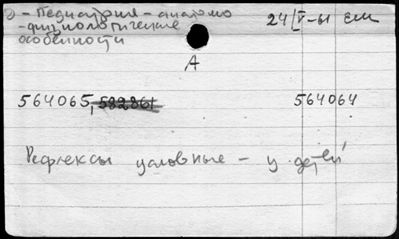 – Педиатрия – анатомо
-физиологические
особенности
24/V-61
А
564065, 582861
564064
Рефлексы условные – у детей